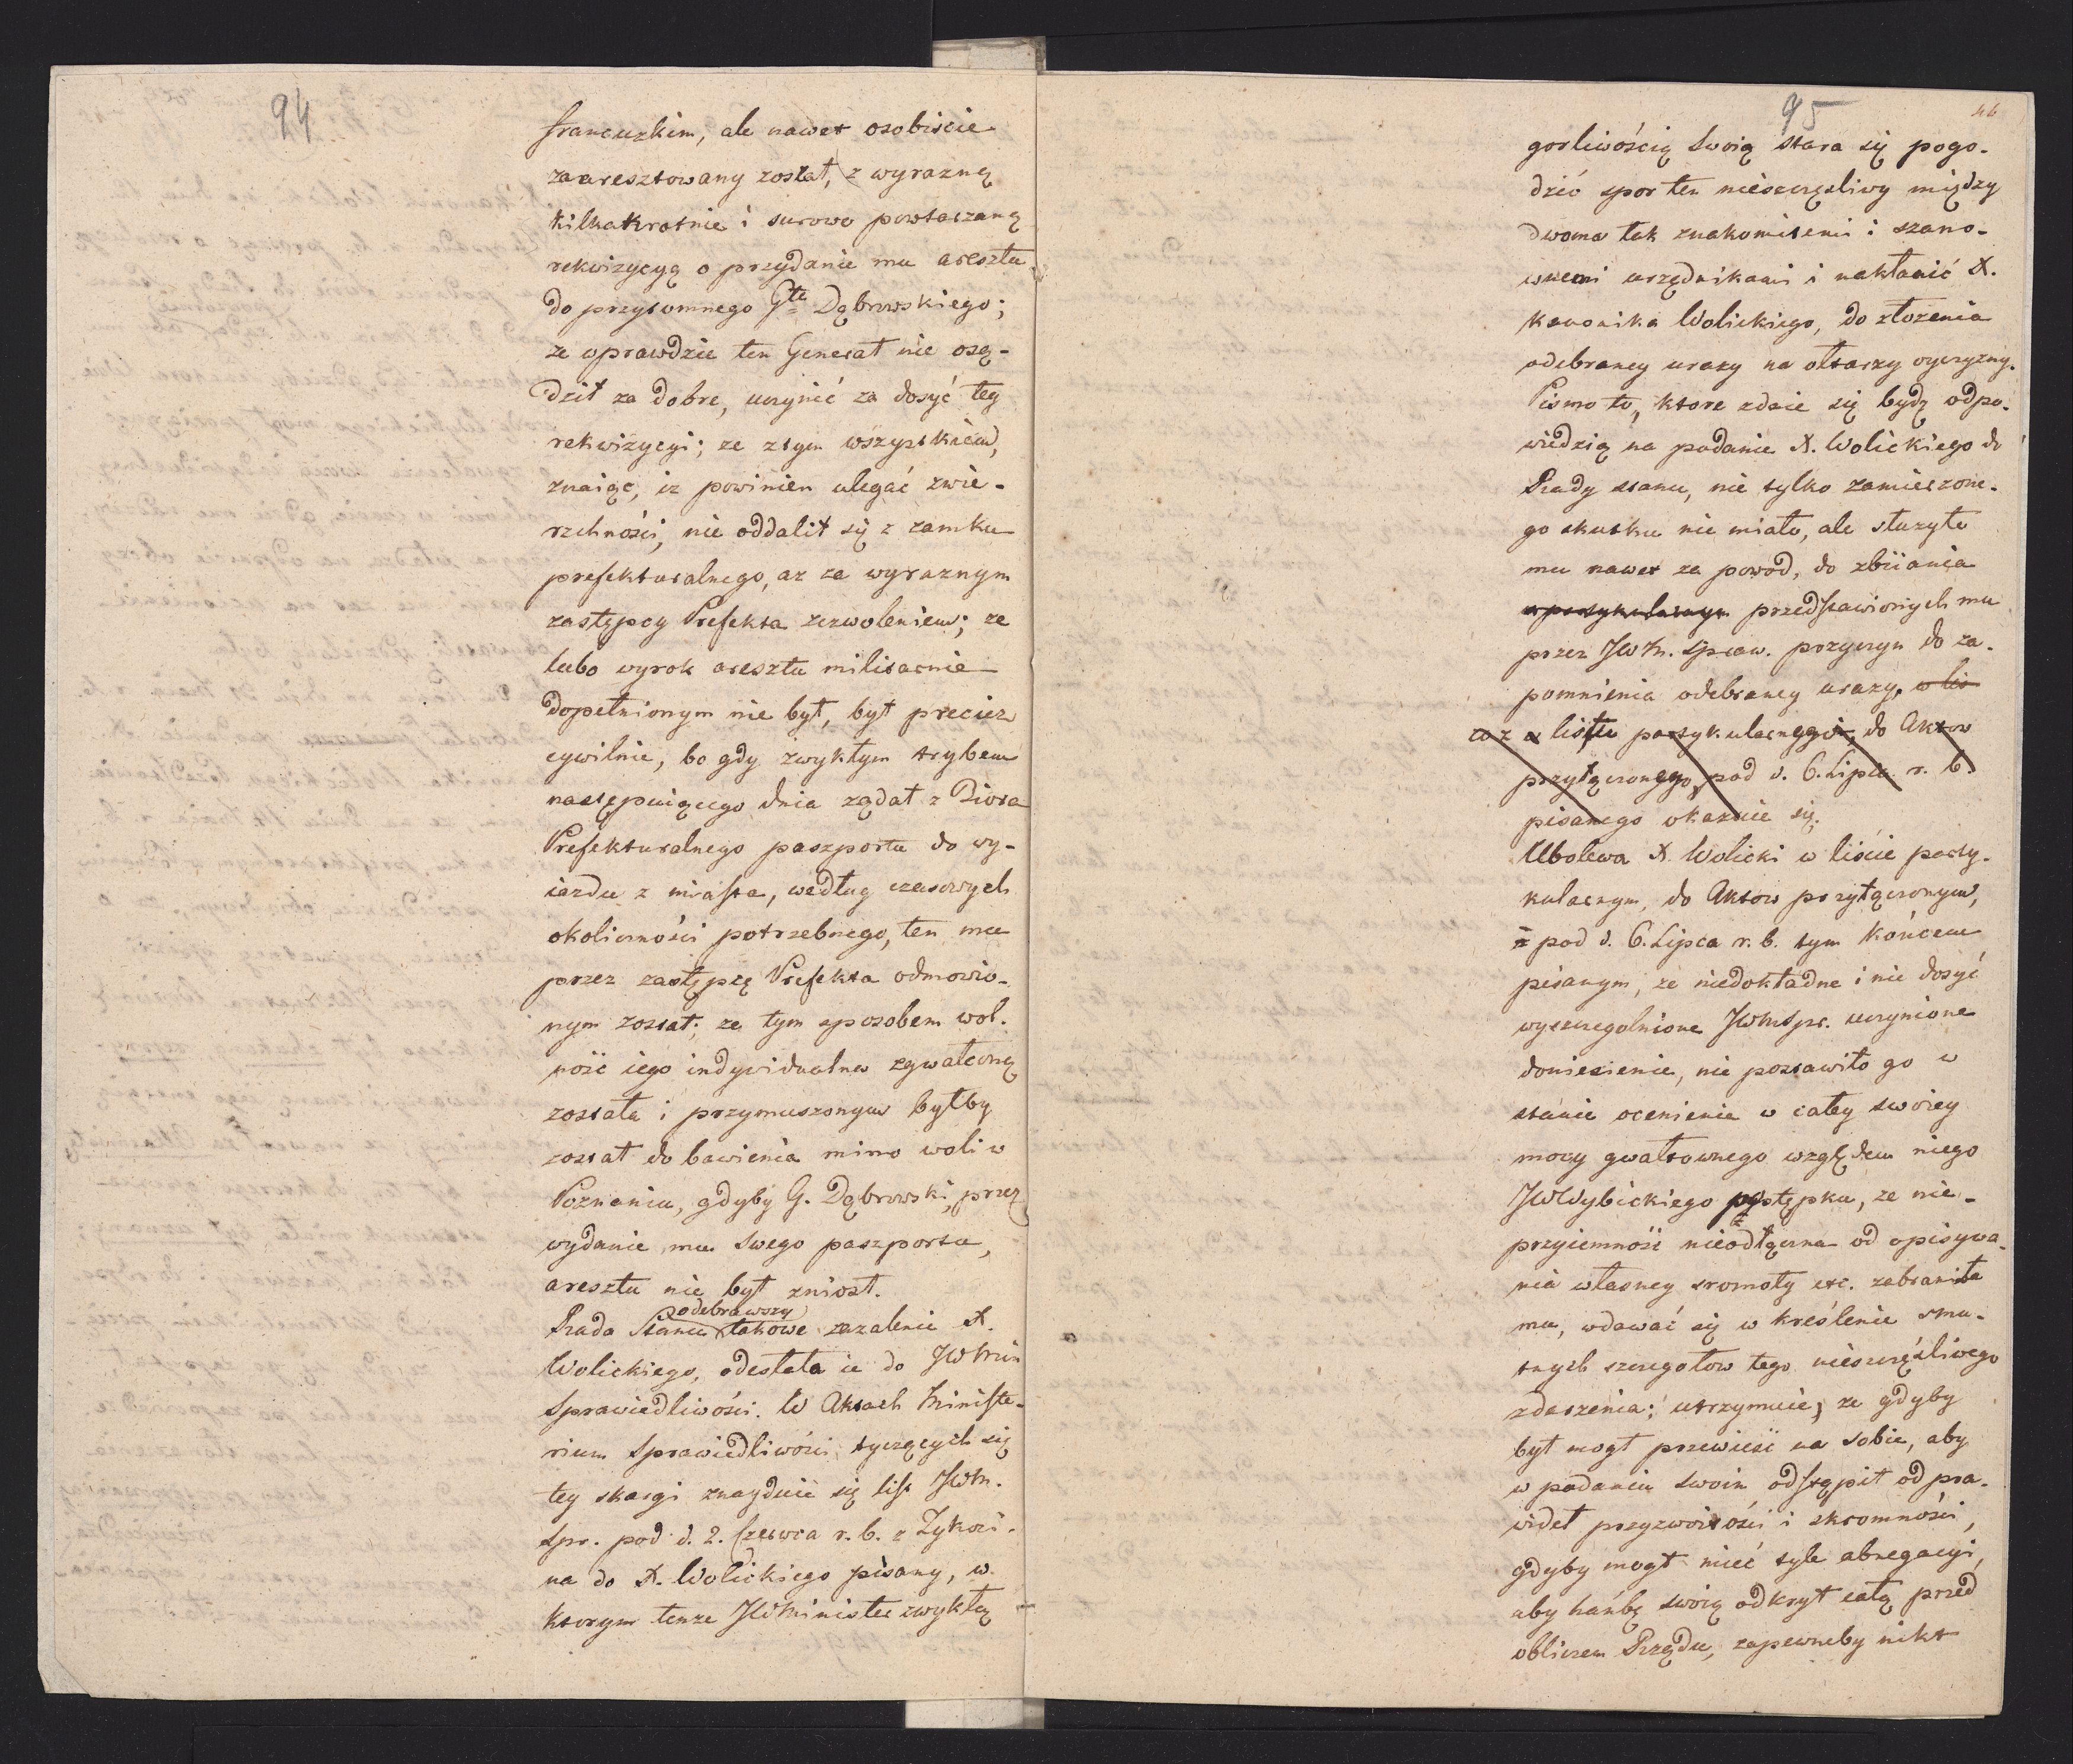 94
francuzkim, ale nawet osobiście
zaaresztowany został, z wyrazną
kilkakrotnie i surowo powtarzaną
rekwizycyą o przydanie mu aresztu
do przytomnego Gła Dąbrowskiego;
ze wprawdzie ten Generał nie osą-
dził za dobre, uczynić za dosyć tey
rekwizycyi; ze ztym wszystkiem,
znaiąc, iz powinien ulegać zwie-
rzchności, nie oddalił się z zamku
prefekturalnego, az za wyraznym
zastępcy Prefekta zezwoleniem; ze
lubo wyrok aresztu militarnie
dopełnionym nie był, był przeciez
cywilnie, bo gdy zwykłym trybem
następuiącego dnia ządał z Biora
Prefekturalnego paszportu do wy-
iazdu z miasta, według czasowych
okoliczności potrzebnego, ten mu
przez zastępcę Prefekta odmowio-
nym został; ze tym sposobem wol-
ność iego indywidualna zgwałconą
została i przymuszonym byłby
został do bawienia mimo woli w
Poznaniu, gdyby G. Dąbrowski, przez
wydanie mu swego paszportu,
aresztu nie był zniosł.
odebrawszy
Rada Stanu takowe zazalenie X.
Wolickiego, odesłała ie do JWMin
Sprawiedliwości. W Aktach Ministe-
rium Sprawiedliwości tyczących się
tey skargi znayduie się list JWM.
Spr. pod d. 2. Czerwca r. b. z Tykoci-
na do X. Wolickiego pisany, w
ktorym tenze JWMinister zwykłą
95
46
gorliwością swoią stara się pogo-
dzić spor ten nieszczęśliwy między
dwoma tak znakomitemi i szano-
wnemi urzędnikami i nakłonić X.
kanonika Wolickiego, do złożenia
odebraney urazy na ołtarzu oyczyzny.
Pismo to, ktore zdaie się bydź odpo-
wiedzią na podanie X. Wolickiego do
Rady stanu, nie tylko zamierzone-
go skutku nie miało, ale służyło
mu nawet za powod, do zbiiania
przedstawionych mu
przez JWM. Spraw. przyczyn do za-
pomnienia odebraney urazy, w lis
co z listu partykularnego, do Aktow
przyłączonego, pod d. 6. Lipca r. b.
pisanego okazuie się.
Ubolewa X. Wolicki w liście party-
kularnym, do Aktow przyłączonym,
i pod d. 6. Lipca r. b. tym końcem
pisanym, ze niedokładne i nie dosyć
wyszczegolnione JWMSpr. uczynione
doniesienie, nie postawiło go w
stanie ocenienia w całey swoiey
mocy gwałtownego względem niego
JWWybickiego postępku, ze nie-
przyiemność nieodłączna od opisywa-
nia własney sromoty etc. zabraniła
mu, wdawać się w kreślenie smu-
tnych szczegołow tego nieszczęśliwego
zdarzenia; utrzymuie, ze gdyby
był mogł przewieść na sobie, aby
w podaniu swoim odstąpił od pra-
wideł przyzwoitości i skromności,
gdyby mogł mieć tyle abnegacyi,
aby hańbę swoią odkrył całą przed
obliczem Rządu, zapewneby nikt